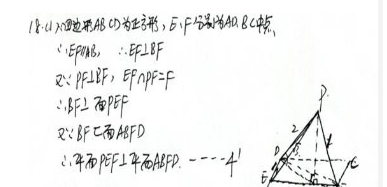 18.(1) ∵四边形ABCD为正方形,E、F分别为AD、BC中点
∴EF∥AB, ∴EF⊥BF
又∵PF⊥BF, EF∩PF=F
∴BF⊥面PEF
又∵BF⊂面ABFD
∴平面PEF⊥平面ABFD. ----4'
P
2
D
C
E